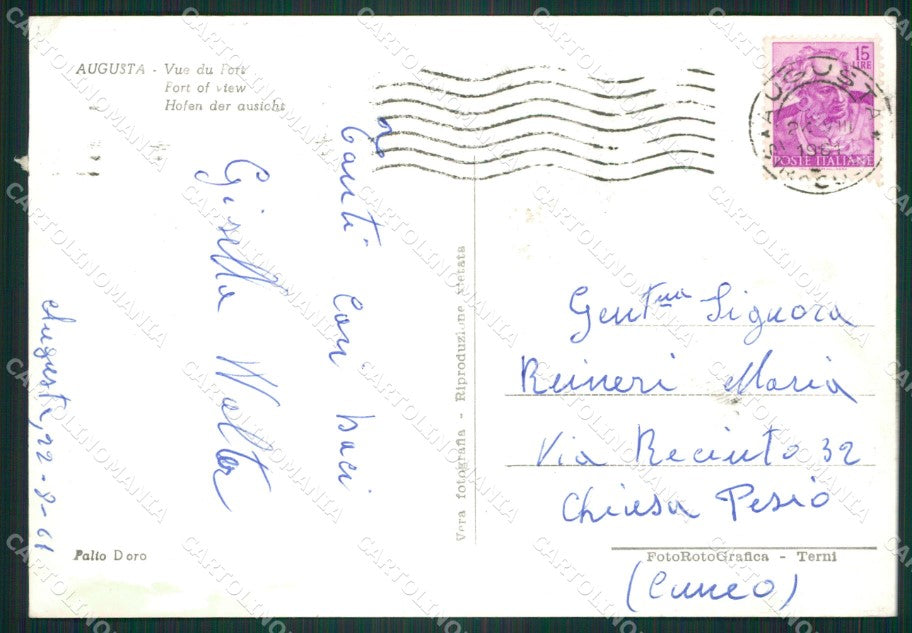 AUGUSTA - Vue du Port
Port of view
Hofen der ausicht
15
LIRE
POSTE ITALIANE
AUGUSTA
1961
Tanti
Cari baci
Gisella Walter
Augusta, 22-8-61
Vera fotografia - Riproduzione vietata
Gent.ma Signora
Reineri Maria
Via Recinto 32
Chiesa Pesio
(Cuneo)
Palio Doro
FotoRotoGrafica - Terni
CARTOLINOMANIA